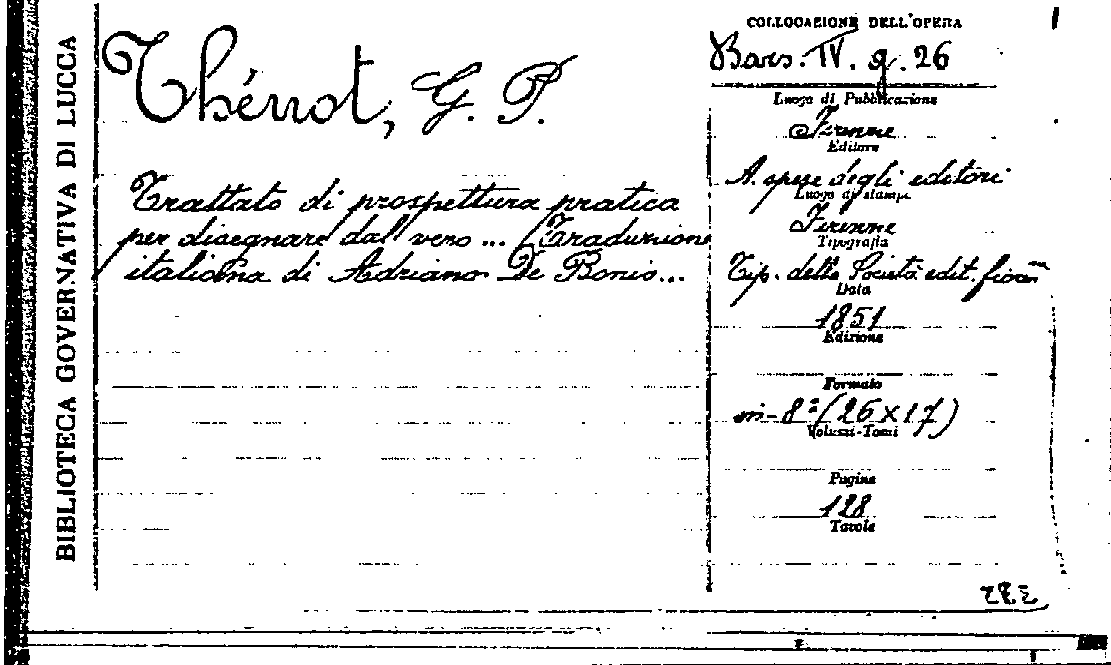 BIBLIOTECA GOVERNATIVA DI LUCCA
Thénot, G. P.
Trattato di prospettura pratica
per disegnare dal vero ... (Traduzione
italiana di Adriano De Bonis...
COLLOCAZIONE DELL'OPERA
Bars. IV. g. 26
Luogo di Pubblicazione
Firenze
Editore
A spese degli editori
Luogo di stampa
Firenze
Tipografia
Tip. della Società edit. fioren
Data
1851
Edizione
Formato
in-8º (26 x 17)
Volumi-Tomi
Pagine
128
Tavole